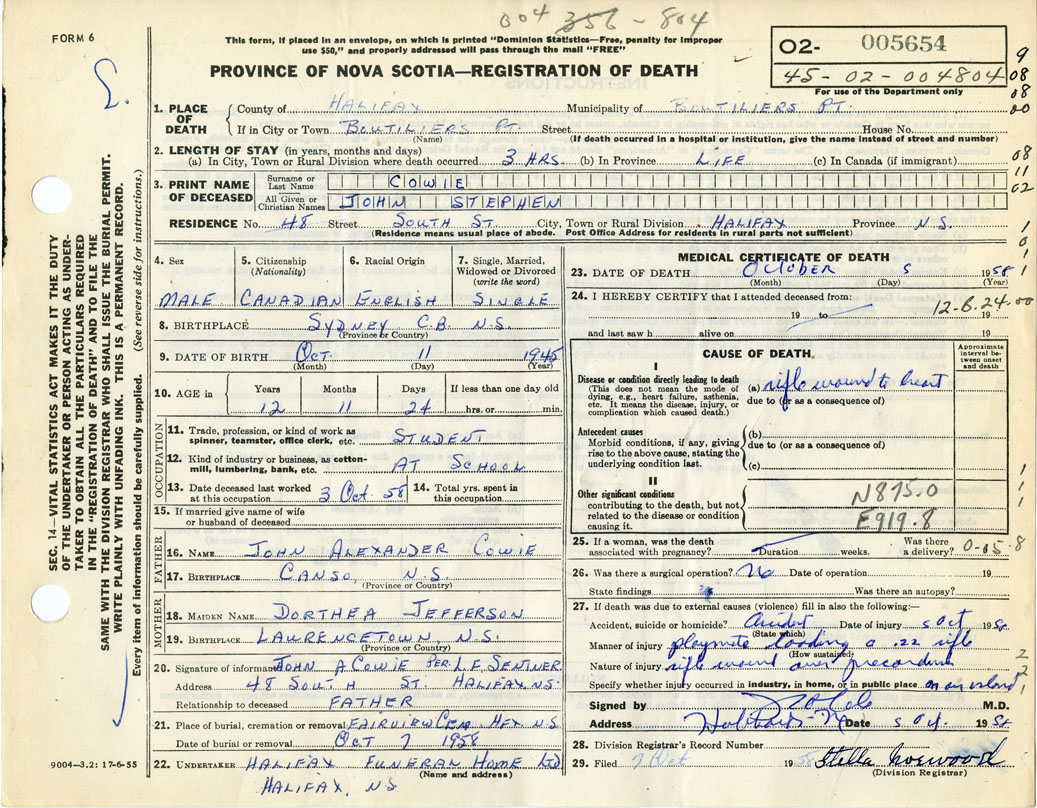 004 356 - 804
FORM 6
This form, if placed in an envelope, on which is printed "Dominion Statistics—Free, penalty for improper
use $50," and properly addressed will pass through the mail "FREE"
PROVINCE OF NOVA SCOTIA—REGISTRATION OF DEATH
O2- 005654
45-02-004804
For use of the Department only
9
08
08
00
1. PLACE OF DEATH County of HALIFAX Municipality of BOUTILIERS PT.
If in City or Town BOUTILIERS PT. Street House No.
(Name) (If death occurred in a hospital or institution, give the name instead of street and number)
2. LENGTH OF STAY (in years, months and days)
(a) In City, Town or Rural Division where death occurred 3 HRS. (b) In Province LIFE (c) In Canada (if immigrant)
08
11
02
3. PRINT NAME OF DECEASED Surname or Last Name COWIE
All Given or Christian Names JOHN STEPHEN
RESIDENCE No. 48 Street SOUTH ST. City, Town or Rural Division HALIFAX Province N.S.
(Residence means usual place of abode. Post Office Address for residents in rural parts not sufficient)
1
0
1
SEC. 14—VITAL STATISTICS ACT MAKES IT THE DUTY
OF THE UNDERTAKER OR PERSON ACTING AS UNDER-
TAKER TO OBTAIN ALL THE PARTICULARS REQUIRED
IN THE "REGISTRATION OF DEATH" AND TO FILE THE
SAME WITH THE DIVISION REGISTRAR WHO SHALL ISSUE THE BURIAL PERMIT.
WRITE PLAINLY WITH UNFADING INK. THIS IS A PERMANENT RECORD.
Every item of information should be carefully supplied. (See reverse side for instructions.)
4. Sex 5. Citizenship (Nationality) 6. Racial Origin 7. Single, Married, Widowed or Divorced (write the word)
MALE CANADIAN ENGLISH SINGLE
8. BIRTHPLACE SYDNEY C.B. N.S.
(Province or Country)
9. DATE OF BIRTH OCT. 11 1945
(Month) (Day) (Year)
10. AGE in Years Months Days If less than one day old
12 11 24 hrs. or min.
OCCUPATION
11. Trade, profession, or kind of work as
spinner, teamster, office clerk, etc. STUDENT
12. Kind of industry or business, as cotton-
mill, lumbering, bank, etc. AT SCHOOL
13. Date deceased last worked at this occupation 3 OCT. 58 14. Total yrs. spent in this occupation
15. If married give name of wife
or husband of deceased
FATHER
16. NAME JOHN ALEXANDER COWIE
17. BIRTHPLACE CANSO, N.S.
(Province or Country)
MOTHER
18. MAIDEN NAME DORTHEA JEFFERSON
19. BIRTHPLACE LAWRENCETOWN, N.S.
(Province or Country)
20. Signature of informant JOHN A COWIE PER. L.F.
Address 48 SOUTH ST. HALIFAX, NS
Relationship to deceased FATHER
21. Place of burial, cremation or removal FAIRVIEW CEM, HFX N.S.
Date of burial or removal OCT 7 1958
22. UNDERTAKER HALIFAX FUNERAL HOME LTD
(Name and address)
HALIFAX, NS
9004—3.2: 17-6-55
MEDICAL CERTIFICATE OF DEATH
23. DATE OF DEATH OCTOBER 5 1958
(Month) (Day) (Year)
24. I HEREBY CERTIFY that I attended deceased from:
19 to 19
12-B.24.00
and last saw h alive on 19
CAUSE OF DEATH.
Approximate interval between onset and death
I
Disease or condition directly leading to death
(This does not mean the mode of dying, e.g., heart failure, asthenia, etc. It means the disease, injury, or complication which caused death.)
(a) rifle wound to heart
due to (or as a consequence of)
Antecedent causes
Morbid conditions, if any, giving rise to the above cause, stating the underlying condition last.
(b)
due to (or as a consequence of)
(c)
II
Other significant conditions
contributing to the death, but not related to the disease or condition causing it.
N875.0
E919.8
1
1
1
25. If a woman, was the death
associated with pregnancy? Duration weeks. Was there a delivery? 0-05-8
26. Was there a surgical operation? No Date of operation 19
State findings Was there an autopsy?
27. If death was due to external causes (violence) fill in also the following:—
Accident, suicide or homicide? Accident Date of injury 5 Oct 1958
(State which)
Manner of injury playmate loading a .22 rifle
(How sustained)
Nature of injury rifle wound over precordium
Specify whether injury occurred in industry, in home, or in public place on an island
2
2
1
Signed by M.D.
Address Hubbards Date 5 Oct. 1958
28. Division Registrar's Record Number
29. Filed 7 Oct 1958 Stella Norwood
(Division Registrar)